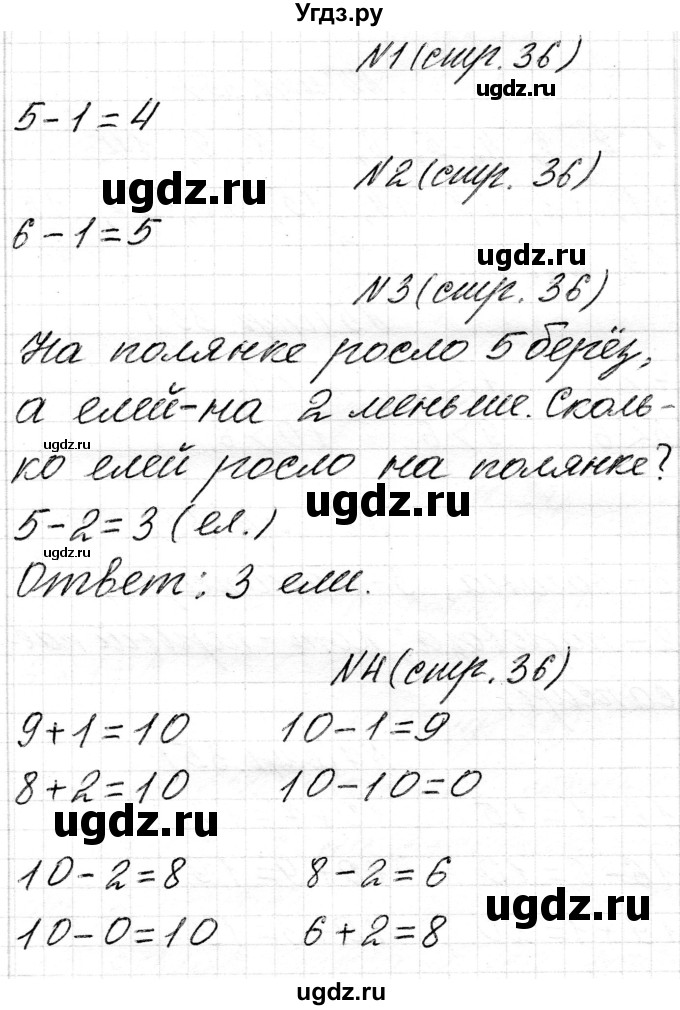 Угдз.ру
№1 (стр. 36)
ugdz.ru
5-1=4
ugdz.ru
№2 (стр. 36)
6-1=5
ugdz.ru
№3 (стр. 36)
На полянке росло 5 берёз,
а елей-на 2 меньше. Сколь-
ugdz.ru
ко елей росло на полянке?
ugdz.ru
5-2=3 (ел.)
ugdz.ru
Ответ: 3 ели.
№4 (стр. 36)
9+1=10 10-1=9
8+2=10 10-10=0
ugdz.ru
10-2=8 8-2=6
ugdz.ru
10-0=10 6+2=8
ugdz.ru